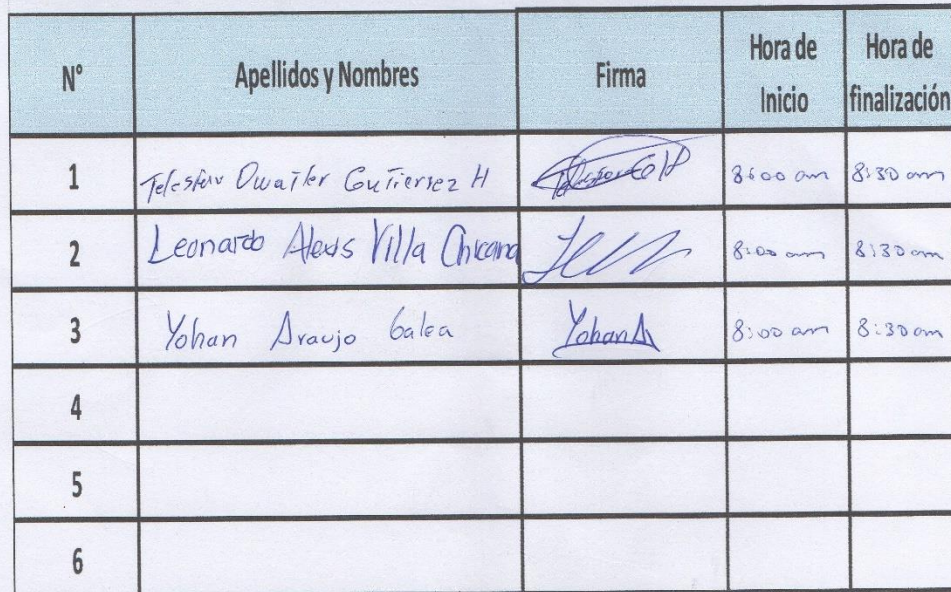 N° Apellidos y Nombres Firma Hora de Inicio Hora de finalización
1 Gutierrez H 8:00 am 8:30 am
2 Leonardo Alexis Villa Chicana 8:00 am 8:30 am
3 Yohan Araujo YohanA 8:00 am 8:30 am
4
5
6